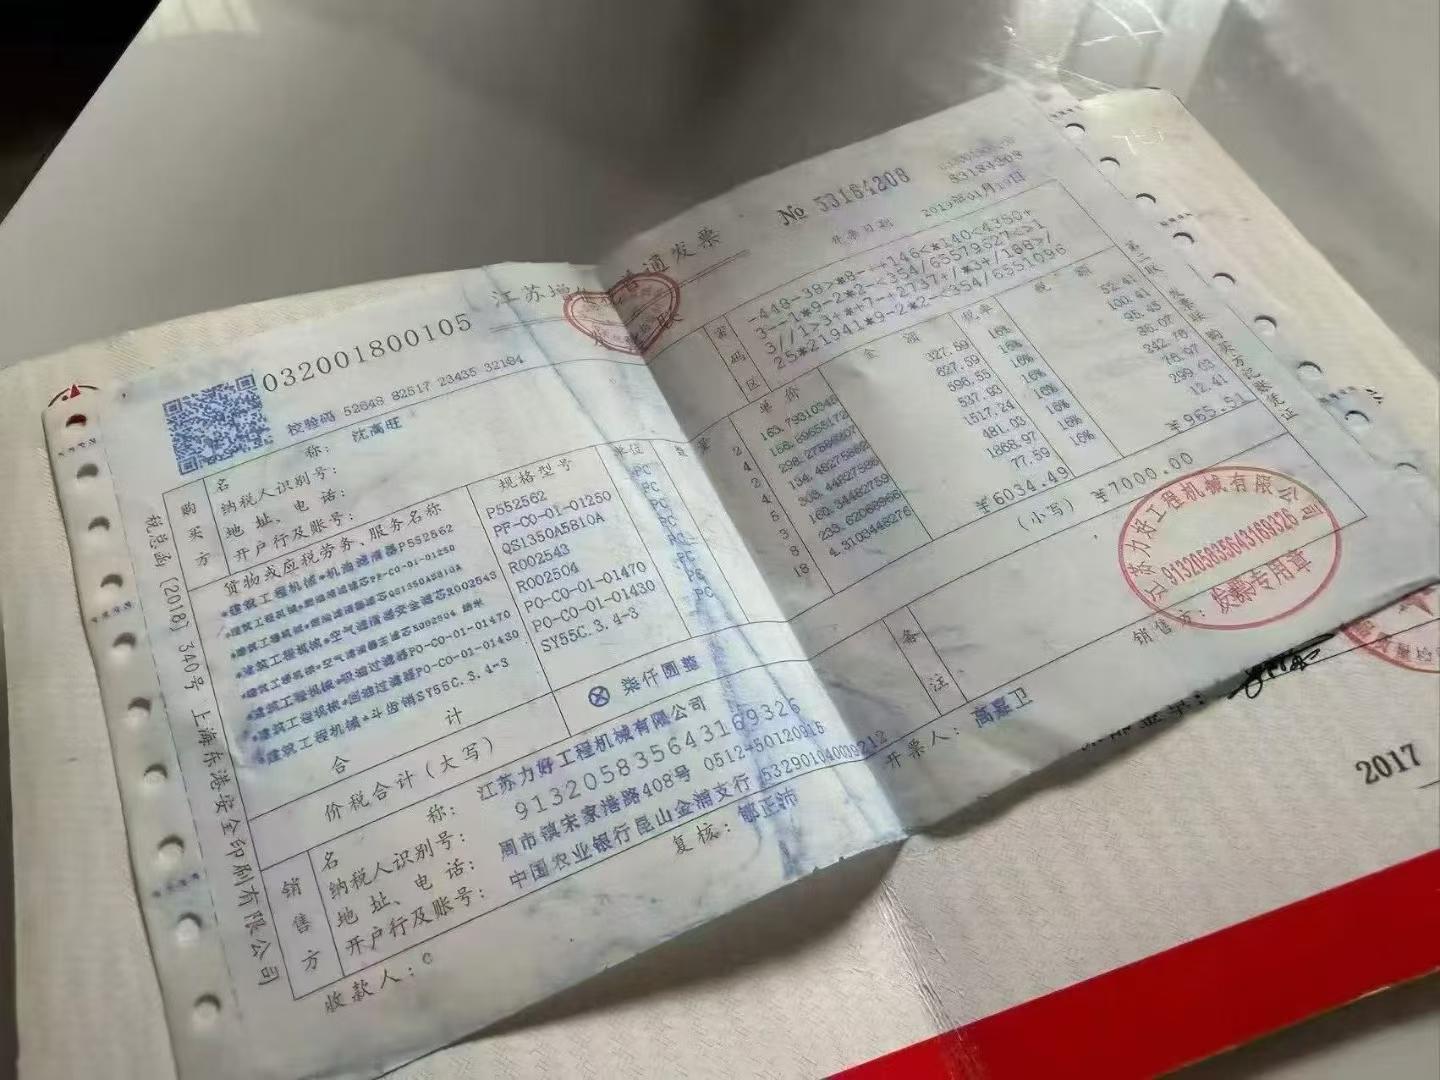 032001800105
江苏增 普通发票
No 53164208
53184208
校验码 52648 82517 23435 32194
开票日期
2019年01月
购买方
名 称: 沈高旺
纳税人识别号:
地址、电话:
开户行及账号:
密码区
-448-38>*8-
+146<*140<4350+
3--1*9-2*2-<354/65579627<>1
3//1>3+*+7-+2737+/*3+/1887/
25*21941*9-2*2-<354/6551096
货物或应税劳务、服务名称 规格型号 单位 数量 单价 金额 税率 税额
*建筑工程机械*机油滤清器P552562 P552562 PC 2 163.7931034 327.59 16% 52.41
PF-CO-01-01250 PC 4 627.59 16% 100.41
QS1350A5810A PC 2 298.27586 596.55 16% 95.45
*建筑工程机械*空气滤清器安全滤芯R002543 R002543 PC 4 134.4827586 537.93 16% 86.07
R002504 PC 5 303.4482758 1517.24 16% 242.76
*建筑工程机械*吸油过滤器PO-CO-01-01470 PO-CO-01-01470 PC 3 160.34482759 481.03 16% 76.97
*建筑工程机械*回油过滤器PO-CO-01-01430 PO-CO-01-01430 PC 8 233.62068966 1868.97 16% 299.03
*建筑工程机械*斗齿销SY55C.3.4-3 SY55C.3.4-3 PC 18 4.3103448276 77.59 16% 12.41
合计 ¥6034.49 ¥965.51
价税合计(大写) ⊗柒仟圆整 (小写) ¥7000.00
销售方
名 称: 江苏力好工程机械有限公司
纳税人识别号: 913205835643169326
地址、电话: 周市镇宋家港路408号 0512-50120915
开户行及账号: 中国农业银行昆山金浦支行
备注
收款人:
复核: 郇正沛
开票人: 高恩卫
销售方:
江苏力好工程机械有限公司
913205835643169326
发票专用章
税总函〔2018〕340号 上海东港安全印刷有限公司
第二联 发票联 购买方记账凭证
2017